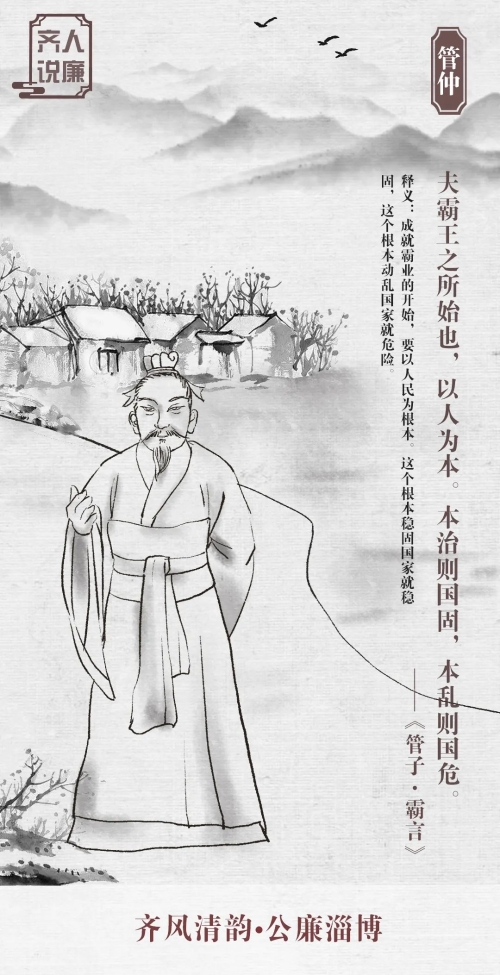 齐人说廉
管仲
夫霸王之所始也，以人为本。本治则国固，本乱则国危。
——《管子·霸言》
释义：成就霸业的开始，要以人民为根本。这个根本稳固国家就稳
固，这个根本动乱国家就危险。
齐风清韵·公廉淄博